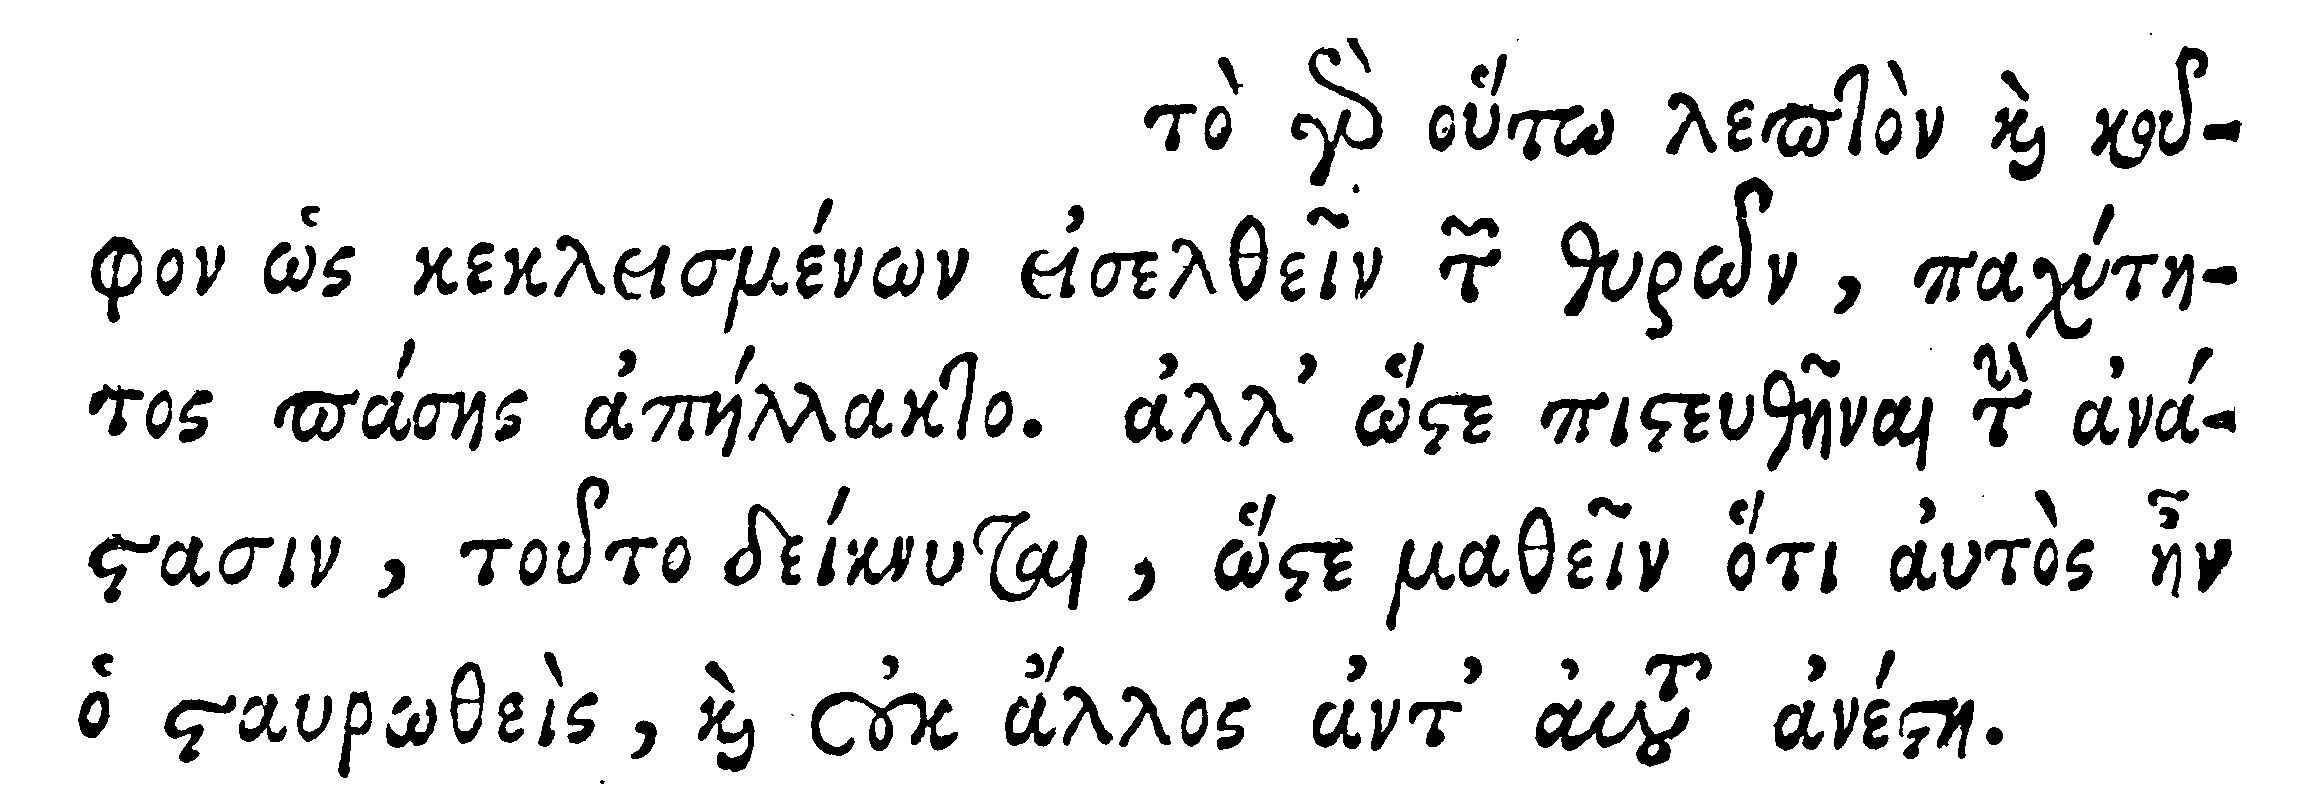 τὸ γὰρ οὕτω λεπτὸν καὶ κοῦ-
φον ὡς κεκλεισμένων εἰσελθεῖν τῶν θυρῶν, παχύτη-
τος πάσης ἀπήλλακτο. ἀλλ’ ὥστε πιστευθῆναι τὴν ἀνά-
στασιν, τοῦτο δείκνυται, ὥστε μαθεῖν ὅτι αὐτὸς ἦν
ὁ σταυρωθεὶς, καὶ οὐκ ἄλλος ἀντ’ αὐτοῦ ἀνέστη.